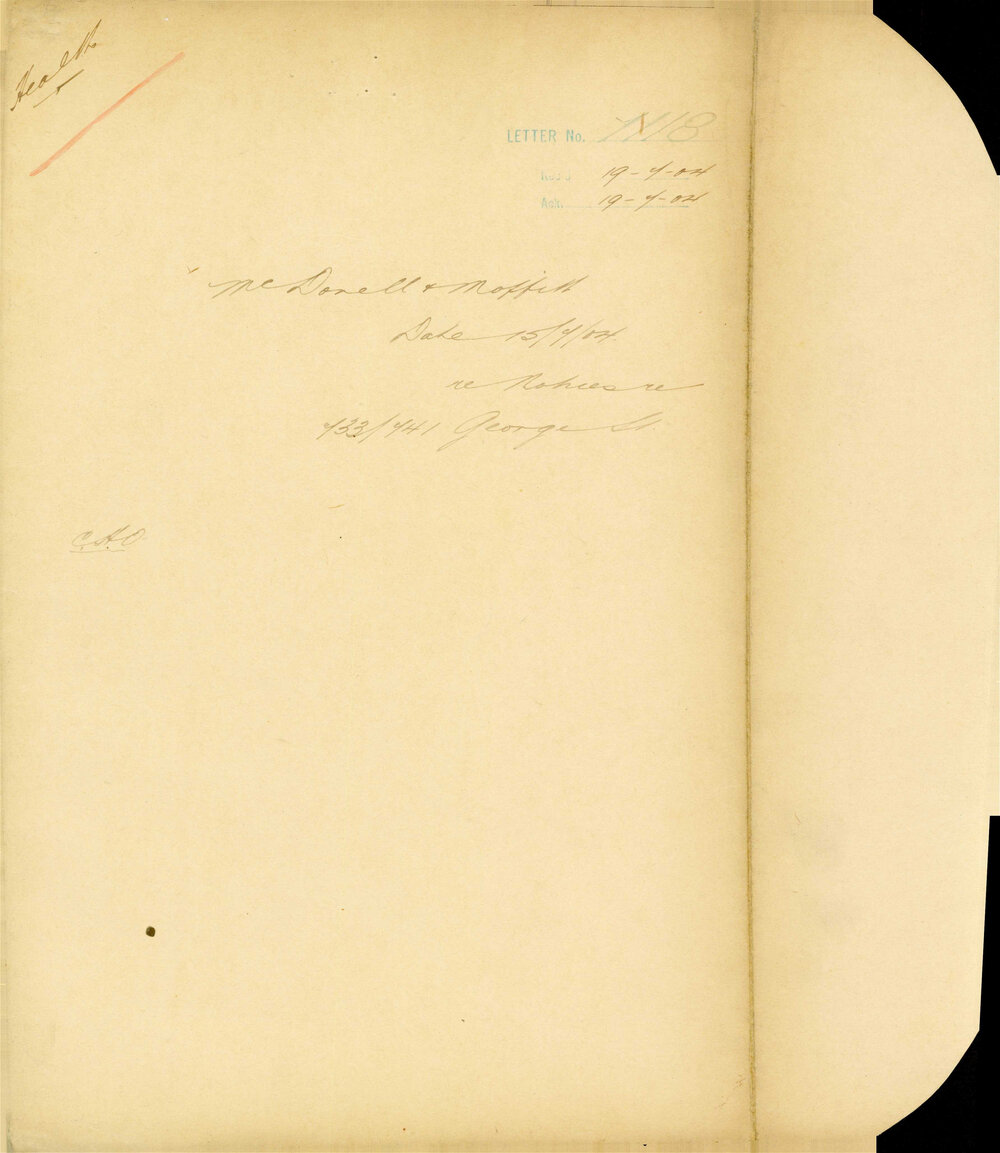 Health
LETTER No. 1118
Recd 19-7-04
Ack. 19-7-04
McDonell & Moffitt
Date 15/7/04
re Notices re
733/741 George St.
C.H.O